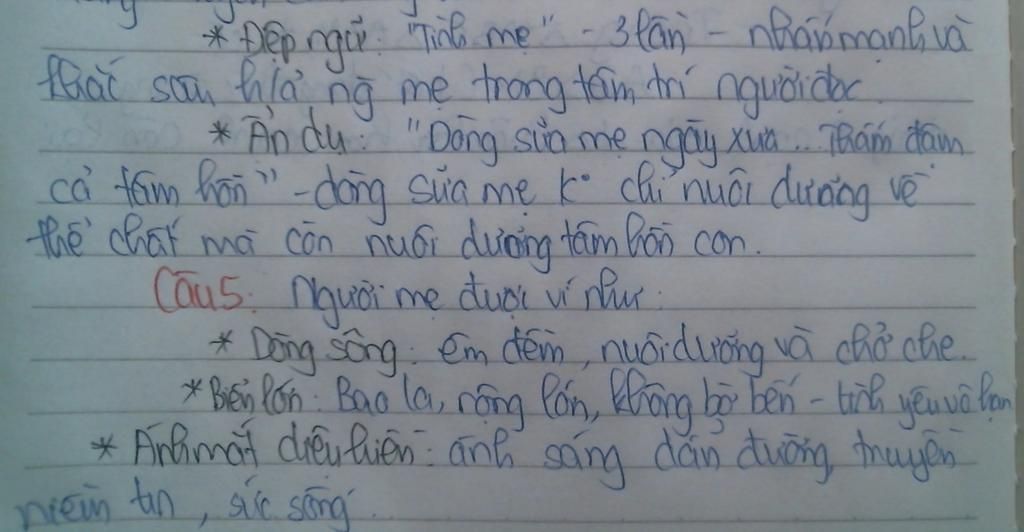 * Điệp ngữ: "Tình mẹ" - 3 lần - nhấn mạnh và
khắc sâu h/ả ng mẹ trong tâm trí người đọc.
* Ẩn dụ: "Dòng sữa mẹ ngày xưa... Thấm đẫm
cả tâm hồn" - dòng sữa mẹ k° chỉ nuôi dưỡng về
thể chất mà còn nuôi dưỡng tâm hồn con.
Câu 5: Người mẹ được ví như:
* Dòng sông: êm đềm, nuôi dưỡng và chở che.
* Biển lớn: Bao la, rộng lớn, không bờ bến - tình yêu vô hạn
* Ánh mắt diệu hiền: ánh sáng dẫn đường, truyền
niềm tin, sức sống.